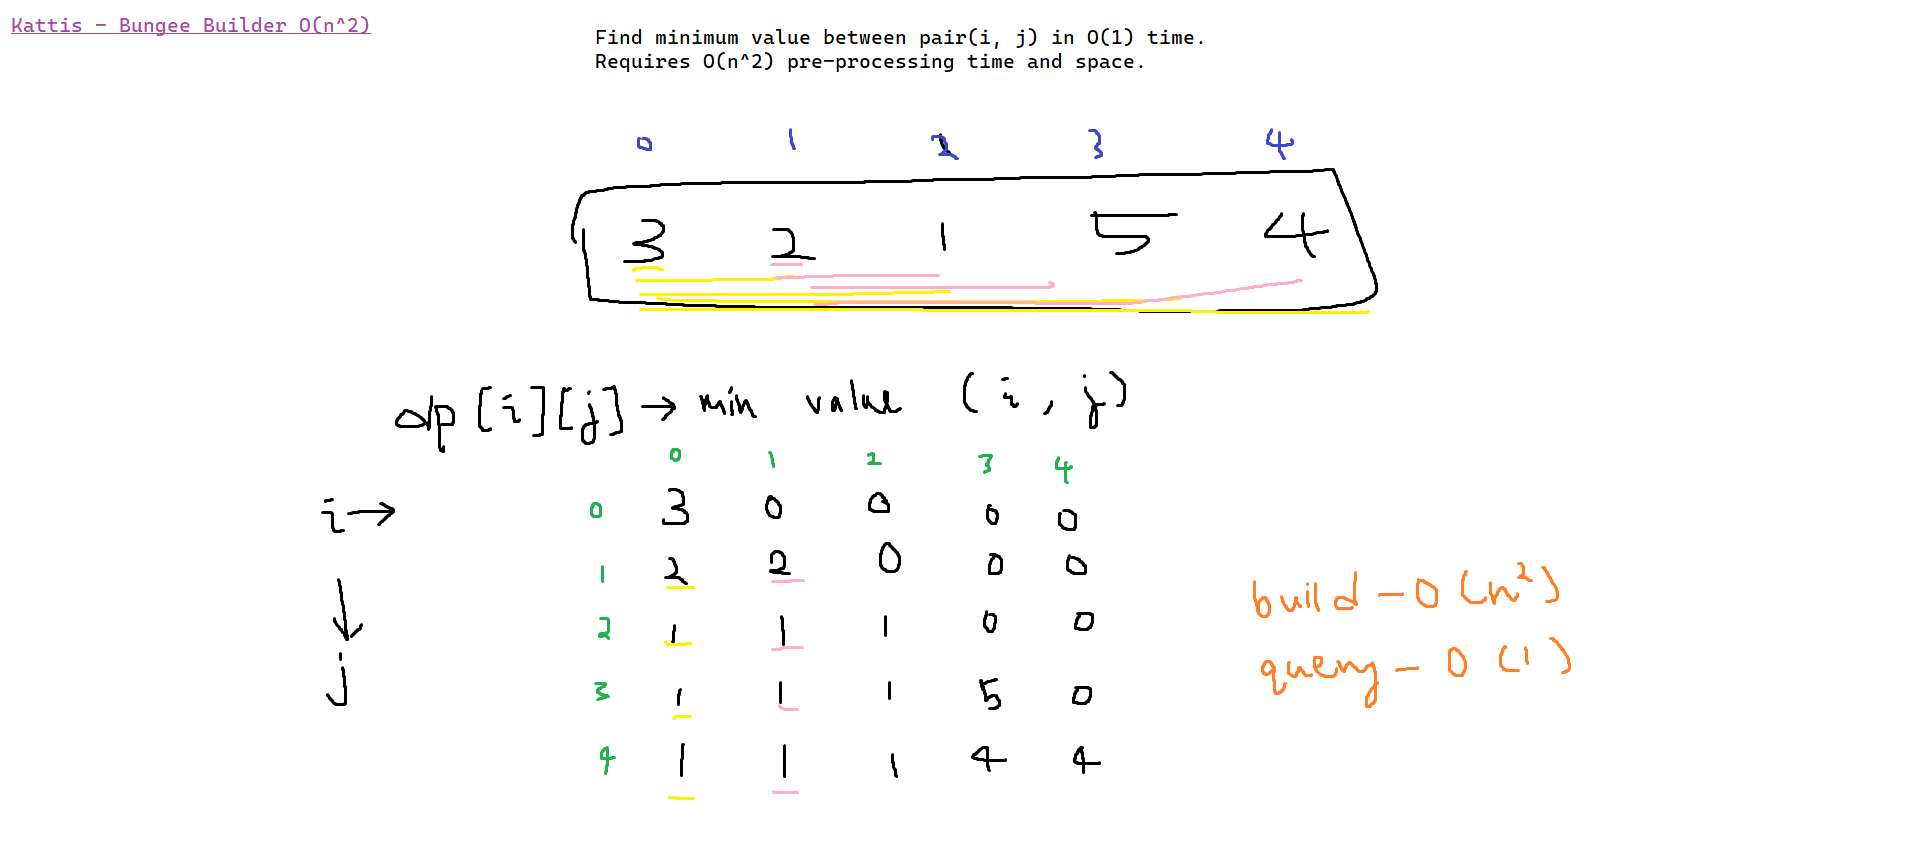 Kattis - Bungee Builder O(n^2)
Find minimum value between pair(i, j) in O(1) time.
Requires O(n^2) pre-processing time and space.
0 1 2 3 4
3 2 1 5 4
dp[i][j] → min value (i, j)
0 1 2 3 4
i → 0 3 0 0 0 0
1 2 2 0 0 0
2 1 1 1 0 0
j 3 1 1 1 5 0
4 1 1 1 4 4
build - O(n²)
query - O(1)